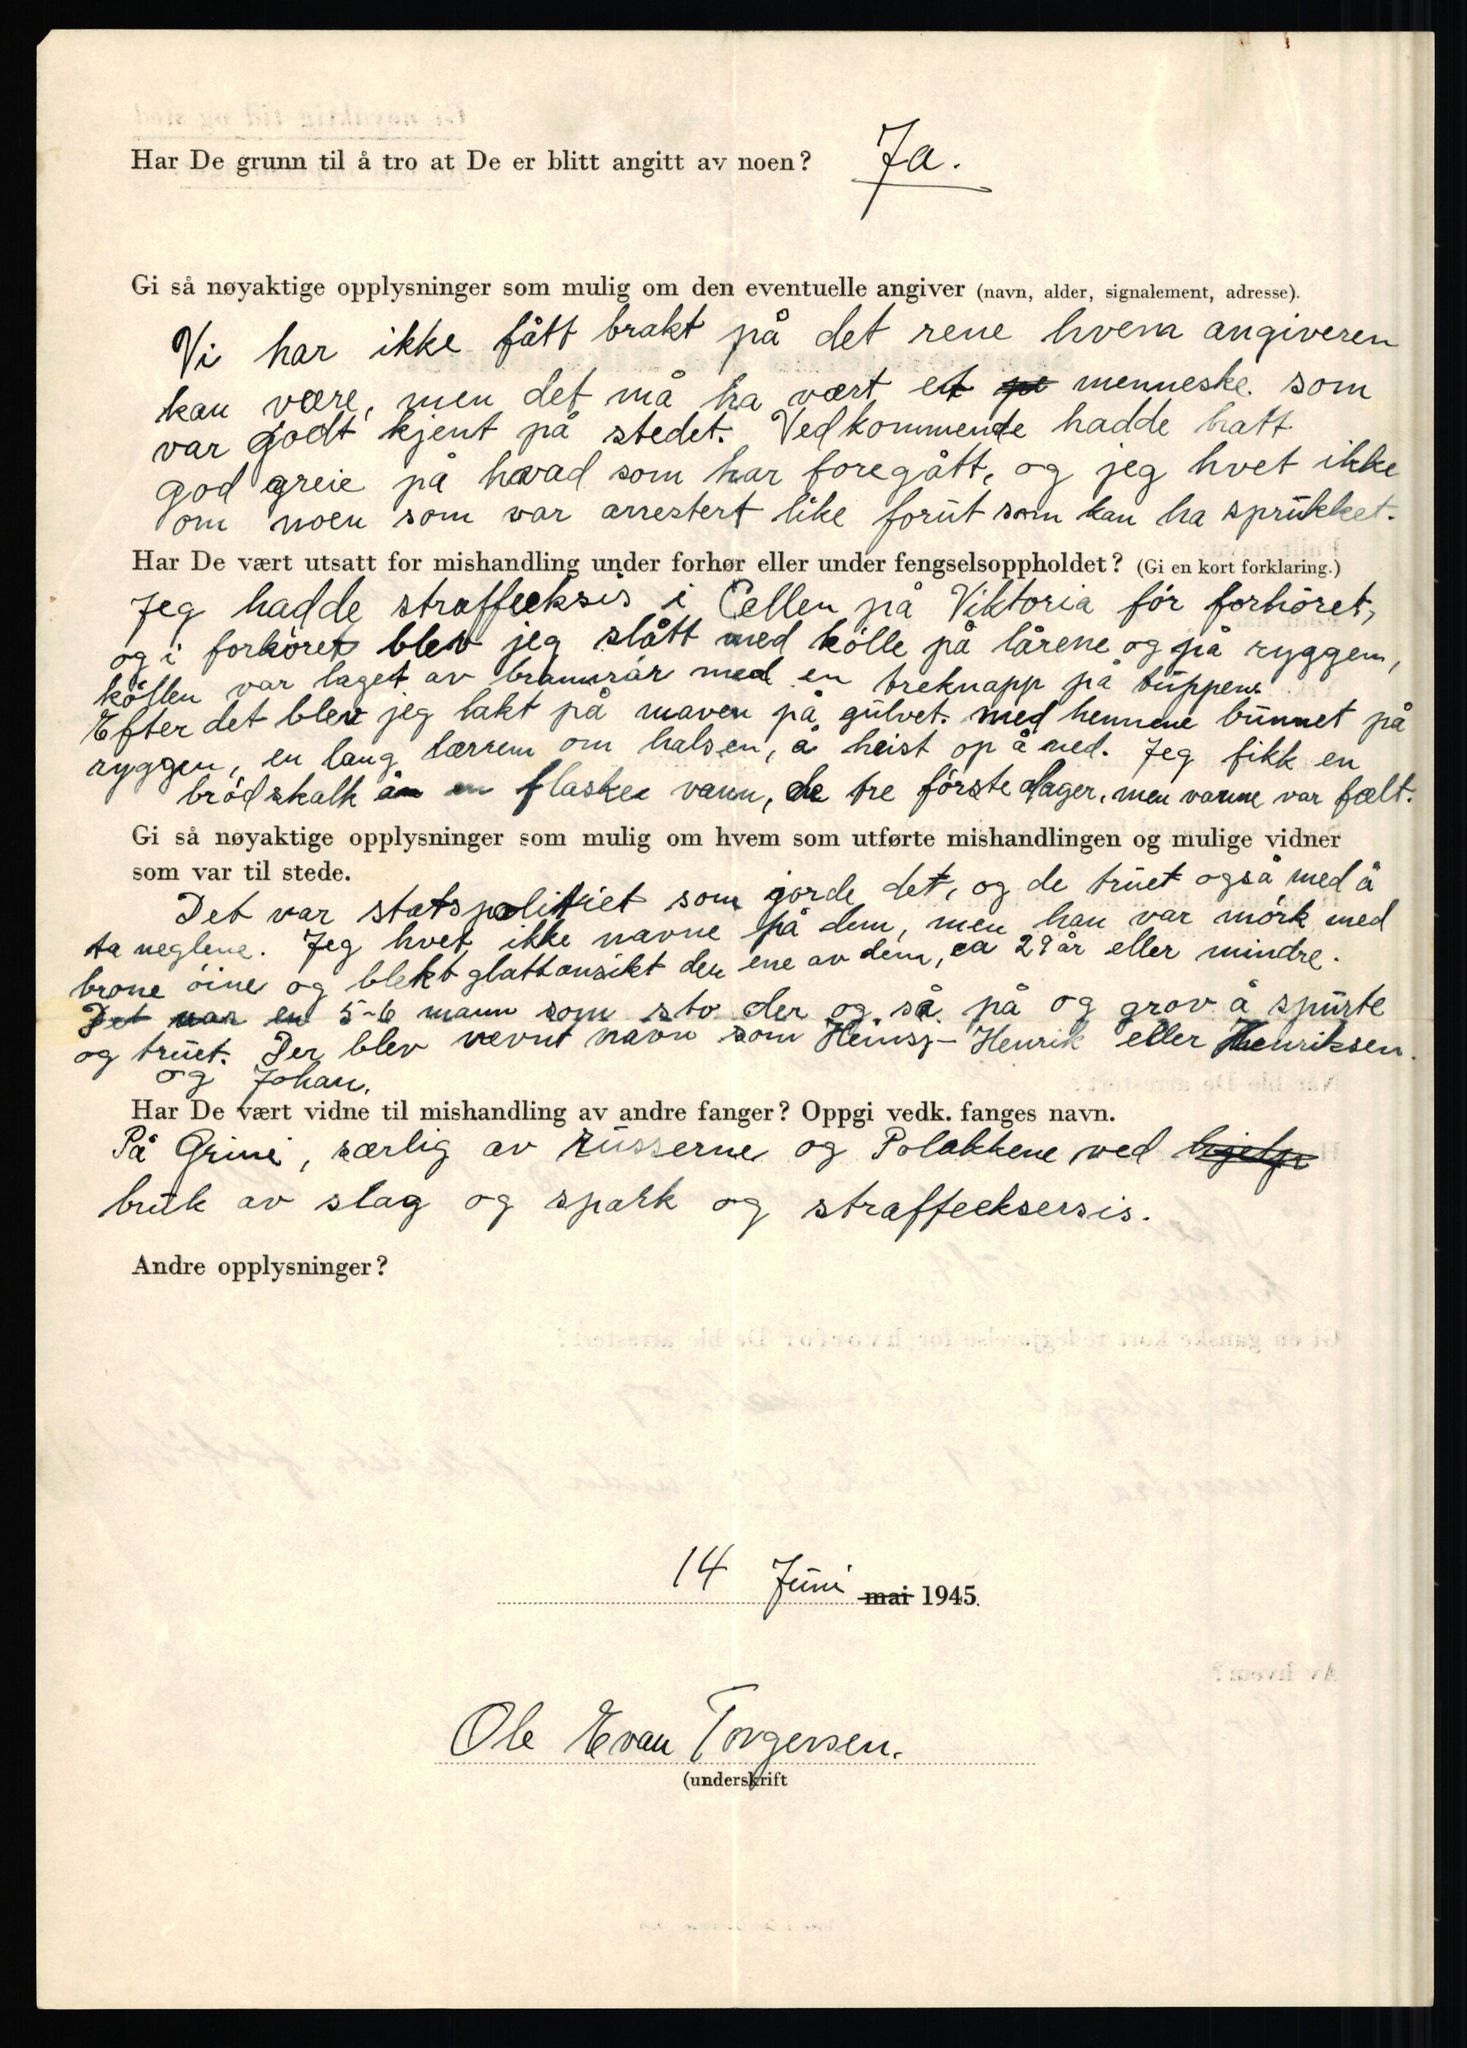 Har De grunn til å tro at De er blitt angitt av noen? Ja.
Gi så nøyaktige opplysninger som mulig om den eventuelle angiver (navn, alder, signalement, adresse).
Vi har ikke fått brakt på det rene hvem angiveren
kan være, men det må ha vært et menneske som
var godt kjent på stedet. Vedkommende hadde hatt
god greie på hvad som har foregått, og jeg hvet ikke
om noen som var arrestert like forut som kan ha sprukket.
Har De vært utsatt for mishandling under forhør eller under fengselsoppholdet? (Gi en kort forklaring.)
Jeg hadde straffeeksis i Cellen på Viktoria før forhøret,
og i forhøret blev jeg slått med kølle på lårene og på ryggen,
køllen var laget av med en treknapp på tuppene.
Efter det blev jeg lakt på maven på gulvet. med hennene bunnet på
ryggen, en lang lærrem om halsen, å heist op å ned. Jeg fikk en
brødskalk å en flaske vann, de tre første dager, men vanne var fælt.
Gi så nøyaktige opplysninger som mulig om hvem som utførte mishandlingen og mulige vidner
som var til stede.
Det var statspolitiet som gjorde det, og de truet også med å
ta neglene. Jeg hvet ikke navne på dem, men han var mørk med
brone øine og blekt glatt ansikt den ene av dem, ca 29 år eller mindre.
Det var en 5-6 mann som sto der og så på og grov å spurte
og truet. Der blev nevnt navn som Heinsz- Henrik eller Henriksen.
og Johan.
Har De vært vidne til mishandling av andre fanger? Oppgi vedk. fanges navn.
På Grini, særlig av russerne og Polakkene ved hjelp
bruk av slag og spark og straffeeksersis.
Andre opplysninger?
14 Juni mai 1945
Ole Evan Torgersen.
(underskrift